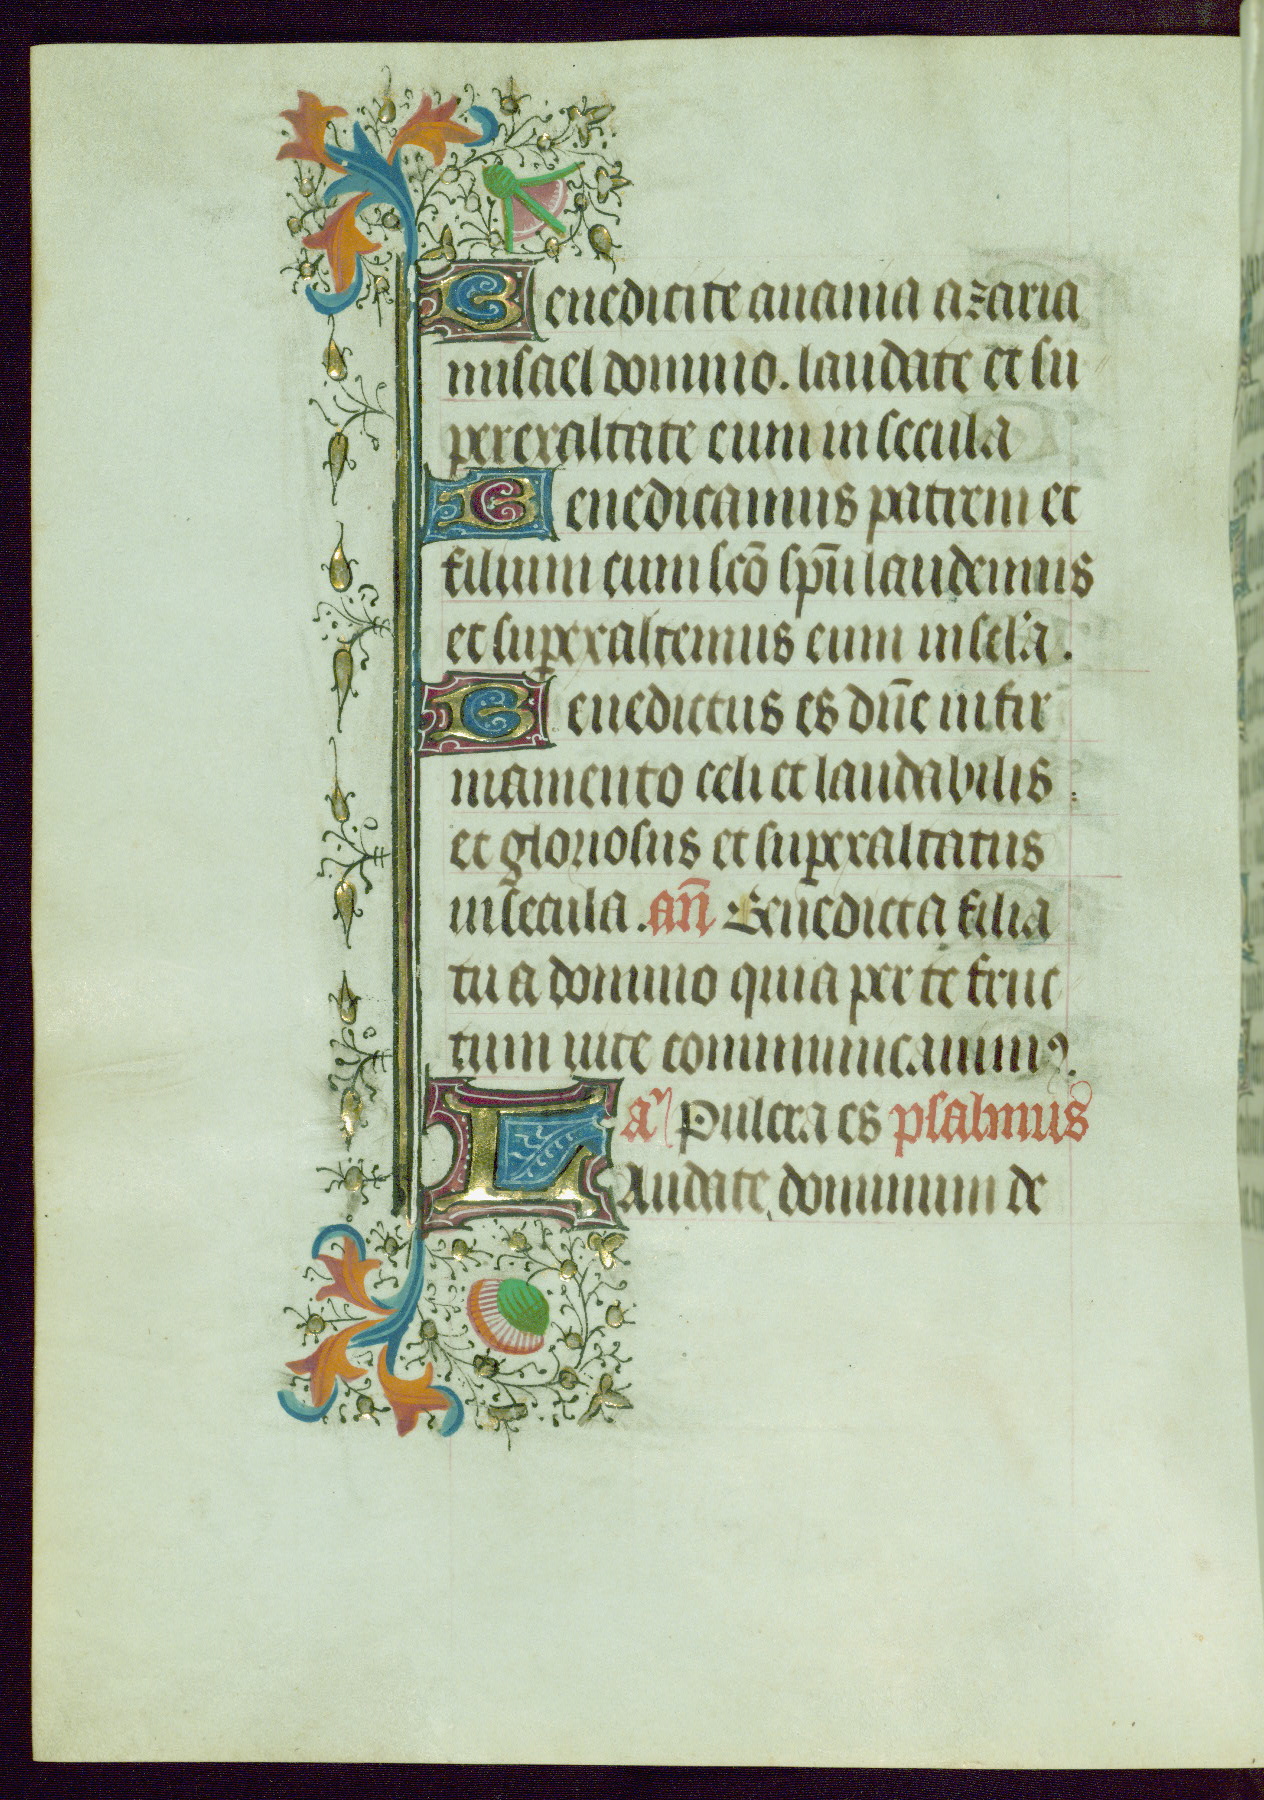 Benedicite anania azaria
misael domino. laudate et su
perexaltate eum in secula
Benedicamus patrem et
filium cum sc̄o sp̄u laudemus
et superexaltemus eum in sc̄la.
Benedictus es dn̄e in fir
mamento celi et laudabilis
et gloriosus et superexaltatus
in secula. an̄ Benedicta filia
tu a domino quia per te fruc
tum uite communicauimꝰ.
a' Pulcra es psalmus
LAudate dominum de